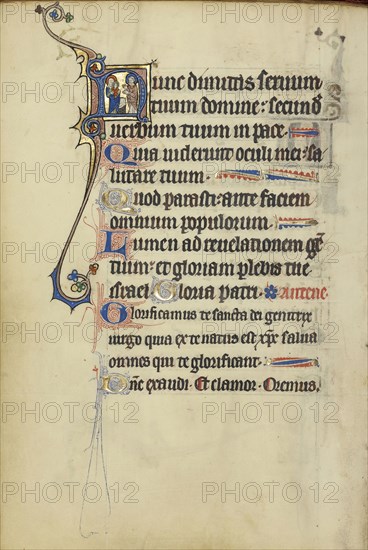 Nunc dimittis seruum
tuum domine: secund
uerbum tuum in pace.
Quia uiderunt oculi mei: sa
lutare tuum.
Quod parasti: ante faciem
omnium populorum.
Lumen ad reuelationem gē
tium: et gloriam plebis tue
israel. Gloria patri. Antene
Glorificamus te sancta dei genitrix
uirgo quia ex te natus est xpc salua
omnes qui te glorificant.
Dñe exaudi. Et clamor. Oremus.